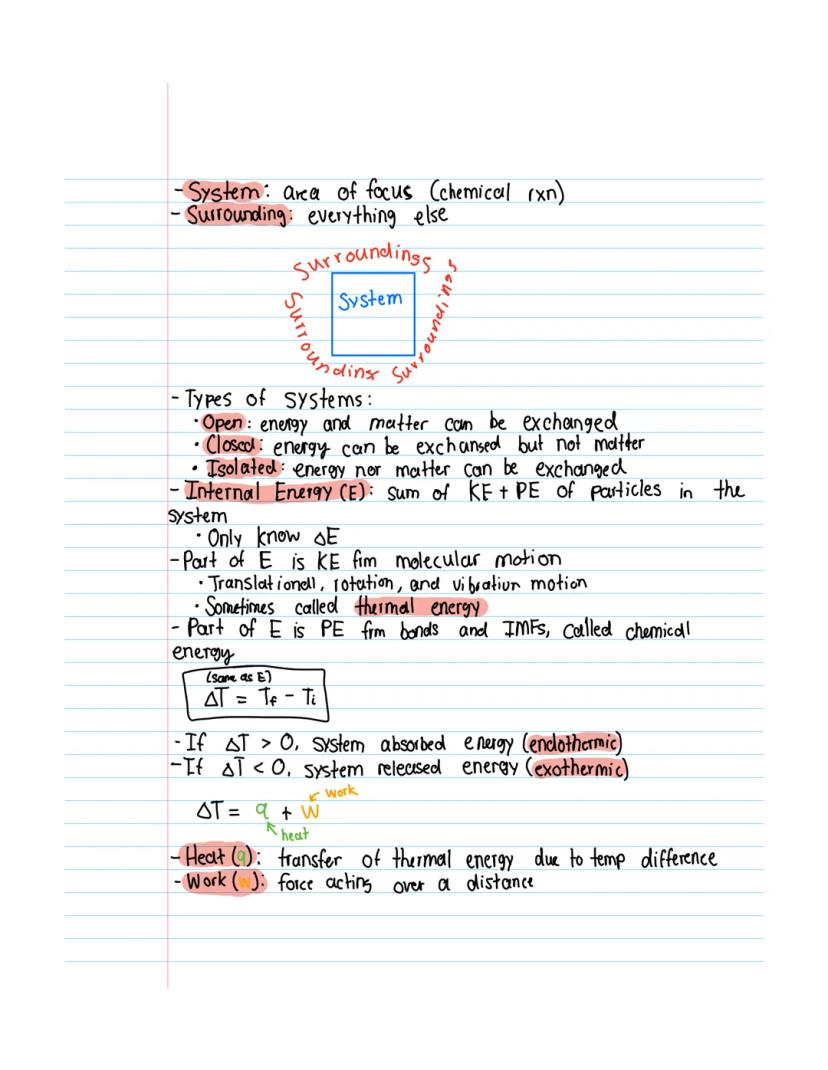 - System: area of focus (chemical rxn)
- Surrounding: everything else
Surroundings
System
Surroundings
Surroundings
- Types of systems:
• Open: energy and matter can be exchanged
• Closed: energy can be exchansed but not matter
• Isolated: energy nor matter can be exchanged
- Internal Energy (E): sum of KE + PE of particles in the
system
• Only know ΔE
- Part of E is KE frm molecular motion
• Translational, rotation, and vibration motion
• Sometimes called thermal energy
- Part of E is PE frm bonds and IMFs, called chemical
energy
(same as E)
ΔT = Tf - Ti
- If ΔT > 0, system absorbed energy (endothermic)
- If ΔT < 0, system released energy (exothermic)
work
ΔT = q + w
heat
- Heat (q): transfer of thermal energy due to temp difference
- Work (w): force acting over a distance